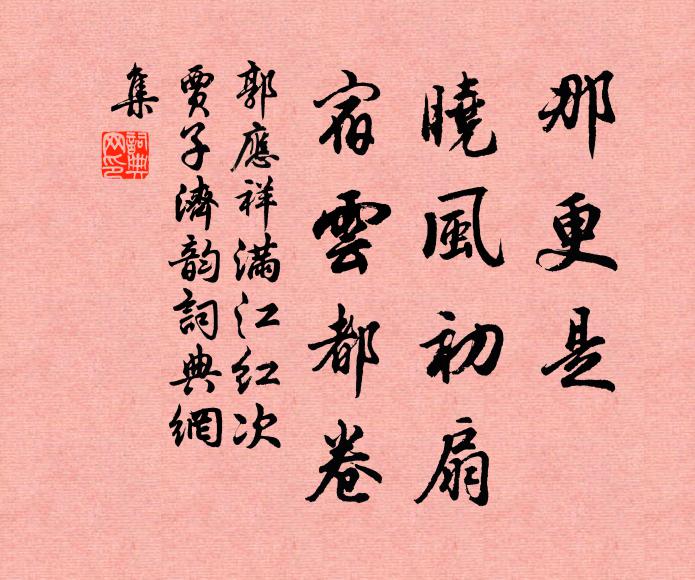 那更是
曉風初扇
宿雲都卷
郭應祥滿江紅次
賈子濟韵詞典網
集
詞典
网印